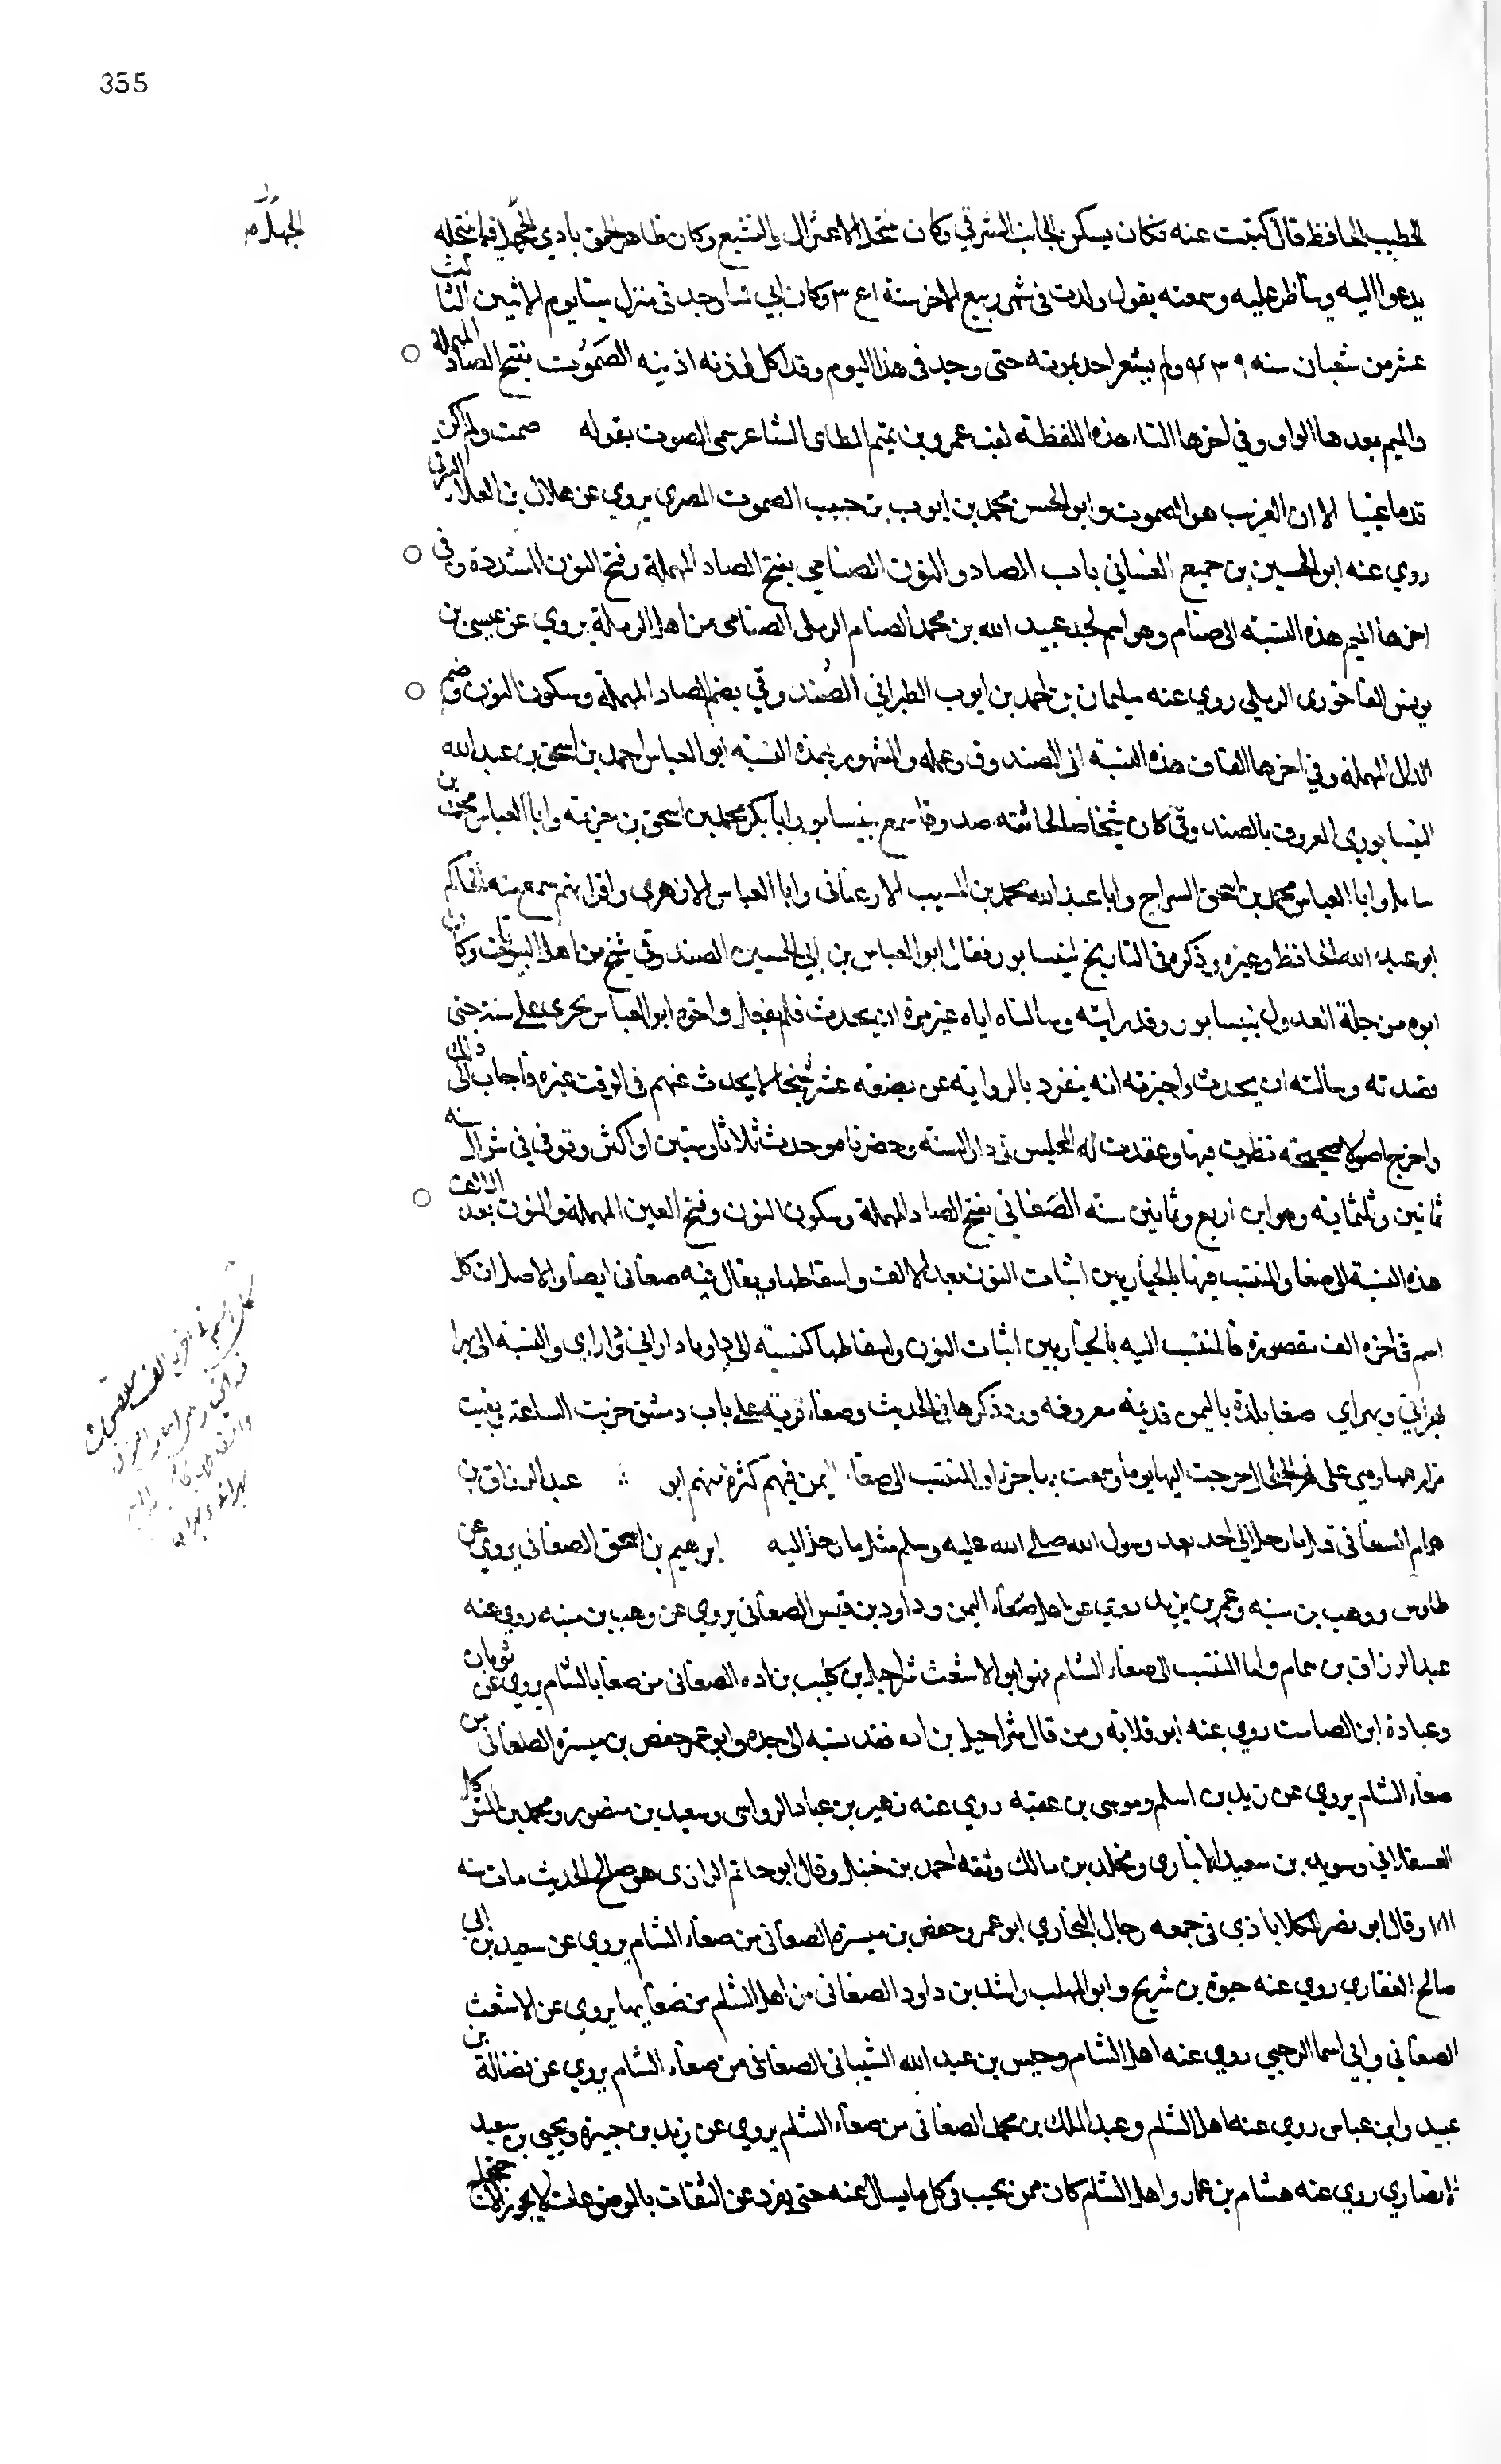 355
الخطيب الحافظ قال كتبت عنه وكان يسكن الجانب الشرقي وكان ينتحل الاعتزال والتشيع وكان ظاهر الحمق بادي الجهل فيما ينتحله
يدعوا اليه ويناظر عليه وسمعته يقول ولدت في شهر ربيع الاخر سنة وكان ابي وجد في منزل ميتا يوم الاثنين الثالث
عشر من شعبان سنه ولم يشعر احد بموته حتى وجد في هذا اليوم وقد اكل اذنيه الصَموُت بفتح الصاد المهملة
والميم بعدها الواو وفي اخرها التاء هذه اللفظة لقب عمرو بن تميم الطاى الشاعر سمى الصموت بقوله صمت ولم اكن
قدما عييا الا ان الغريب هو الصموت وابو الحسن محمد بن ايوب بن حبيب الصموت المصري يروي عن هلال بن العلا الرقي
روي عنه ابو الحسين بن جميع الغساني باب الصاد والنون الصنامي بفتح الصاد المهملة وفتح النون المشددة وفي
اخرها الميم هذه النسبة الى صنام وهو اسم لجد عبيد الله بن محمد الصنام الرملى الصنامى من اهل الرملة يروي عن عيسى بن
يونس الفاخورى الرملى روي عنه سليمان بن احمد بن ايوب الطبراني الصُندوقي بضم الصاد المهملة وسكون النون وضم
الدال المهملة وفي اخرها القاف هذه النسبة الى الصندوق وعمله والمشهور بهذه النسبة ابو العباس احمد بن اسحق بن عبد الله
النيسابوري المعروف بالصندوقي كان شيخا صالحا ثقه صدوقا سمع بنيسابور ابا بكر محمد بن اسحق بن خزيمة وابا العباس محمد بن
شاذل وابا العباس محمد بن اسحق السراج وابا عبد الله محمد بن المسيب الارغيانى وابا العباس الازهرى واقرانهم سمع منه الحاكم
ابو عبد الله الحافظ وغيره وذكره في التاريخ لنيسابور فقال ابو العباس بن ابي الحسين الصندوقي شيخ من اهل البيوتات وكان
ابوه من جلة العدول بنيسابور وقد رايته وسالناه اياه غير مرة ان يحدث فلم يفعل وابو العباس يجرى على سنته حتى
قصدته وسالته ان يحدث واخبرته انه ينفرد بالرواية عن بضعة عشر شيخا لا يحدث عنهم في الوقت غيره فاجاب الى ذلك
واخرج اصولا صحيحة نظرت فيها وعقدت له المجلس في دار السنه وحضرنا هو حدث ثلاثا وستين او اكثر وتوفي في شوال سنه
ثمانين وثلثماية وهو ابن اربع وثمانين سنة الصَنعاني بفتح الصاد المهملة وسكون النون وفتح العين المهملة والنون بعد الالف
هذه النسبة الى صنعا والمنتسب فيها بالخيار بين اثبات النون بعد الالف واسقاطها ويقال فيه صنعانى ايضا والاصل ان كل
اسم في اخره الف مقصورة فالمنتسب اليه بالخيار بين اثبات النون واسقاطها كنسبته الى داريا داراني وداراي والنسبة الى بهرا
بهراني وبهراي صنعا بلدة باليمن قديمة معروفه ورد ذكرها في الحديث وصنعاء قرية على باب دمشق خربت الساعة وبقيت
مزارعها وهي على نهر خرجت اليها يوما وسمعت بها جزءا والمنتسب الى صنعاء اليمن فيهم كثرة منهم ابو عبد الرزاق بن
همام الصنعانى قيل ما رحل الى احد بعد رسول الله صلى الله عليه وسلم مثل ما رحل اليه ابرهيم بن اسحق الصنعانى يروي عن
طاوس ووهب بن منبه وعمر بن يزيد روى عن اهل صنعاء اليمن وداود بن قيس الصنعانى يروي عن وهب بن منبه روى عنه
عبد الرزاق بن همام واما المنتسب الى صنعاء الشام فهو ابو الاشعث شراحيل بن كليب بن اده الصنعانى من صنعا بالشام يروي عن ثوبان
وعبادة ابن الصامت روي عنه ابو قلابة ومن قال شراحيل بن اده فقد نسبه الى جده وابو عمر حفص بن ميسرة الصنعانى من
صنعاء الشام يروي عن زيد بن اسلم وموسى بن عقبة روي عنه زهير بن عباد الرواسى وسعيد بن منصور ومحمد بن المتوكل
العسقلاني وسويد بن سعيد الانباري ومخلد بن مالك وثقه احمد بن حنبل وقال ابو حاتم الرازى هو صالح الحديث مات سنه
١٨١ وقال ابو نصر الكلاباذي في جمعه رجال البخاري ابو عمر وحفص بن ميسرة الصنعانى من صنعاء الشام يروي عن سعيد بن ابي
صالح الغفاري روي عنه حيوة بن شريح وابو المهلب راشد بن داود الصنعانى من اهل الشام من صنعايها يروي عن الاشعث
الصنعاني وابي اسما الرحبي روي عنه اهل الشام وحنش بن عبد الله الشيبانى الصنعانى من صنعاء الشام يروي عن فضالة بن
عبيد وابن عباس روي عنه اهل الشام وعبد الملك بن محمد الصنعانى من صنعاء الشام يروي عن زيد بن جبيرة ويحيى بن سعيد
الانصاري روي عنه هشام بن عمار واهل الشام كان ممن يجيب في كل ما يسال عنه حتى يفرد عن الثقات بالموضوعات لا يجوز الاحتجاج